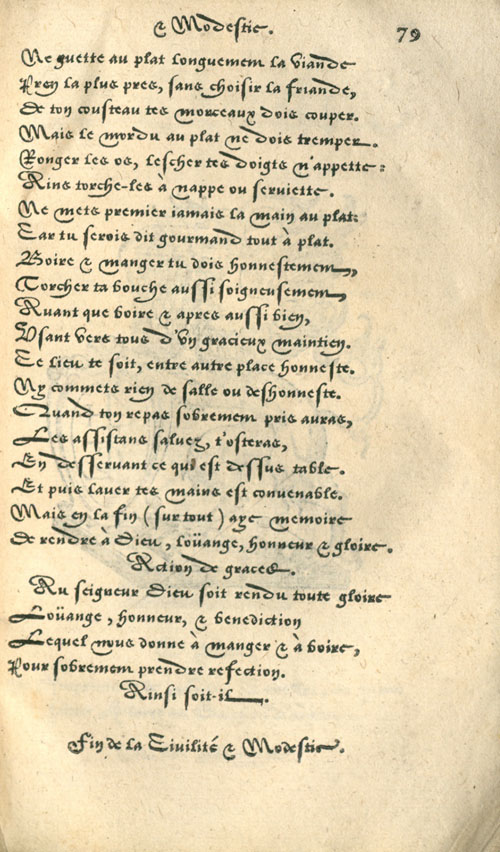 & Modestie. 79
Ne guette au plat longuement la viande
Pren la plus pres, sans choisir la friande,
De ton cousteau tes morceaux dois couper.
Mais le mordu au plat ne dois tremper.
Ronger les os, lescher tes doigts n'appette:
Ains torche-les à nappe ou serviette.
Ne mets premier iamais la main au plat:
Car tu serois dit gourmand tout à plat.
Boire & manger tu dois honnestement,
Torcher ta bouche aussi soigneusement,
Auant que boire & apres aussi bien,
Vsant vers tous d'vn gracieux maintien.
Ce lieu te soit, entre autre place honneste.
N'y commets rien de salle ou deshonneste.
Quand ton repas sobrement pris auras,
Les assistans saluez, t'osteras,
En desservant ce qui est dessus table.
Et puis lauer tes mains est conuenable.
Mais en la fin (sur tout) aye memoire
De rendre à Dieu, loüange, honneur & gloire.
Action de graces.
Au seigneur Dieu soit rendu toute gloire
Loüange, honneur, & benediction
Lequel nous donne à manger & à boire,
Pour sobrement prendre refection.
Ainsi soit-il.
Fin de la Ciuilité & Modestie.